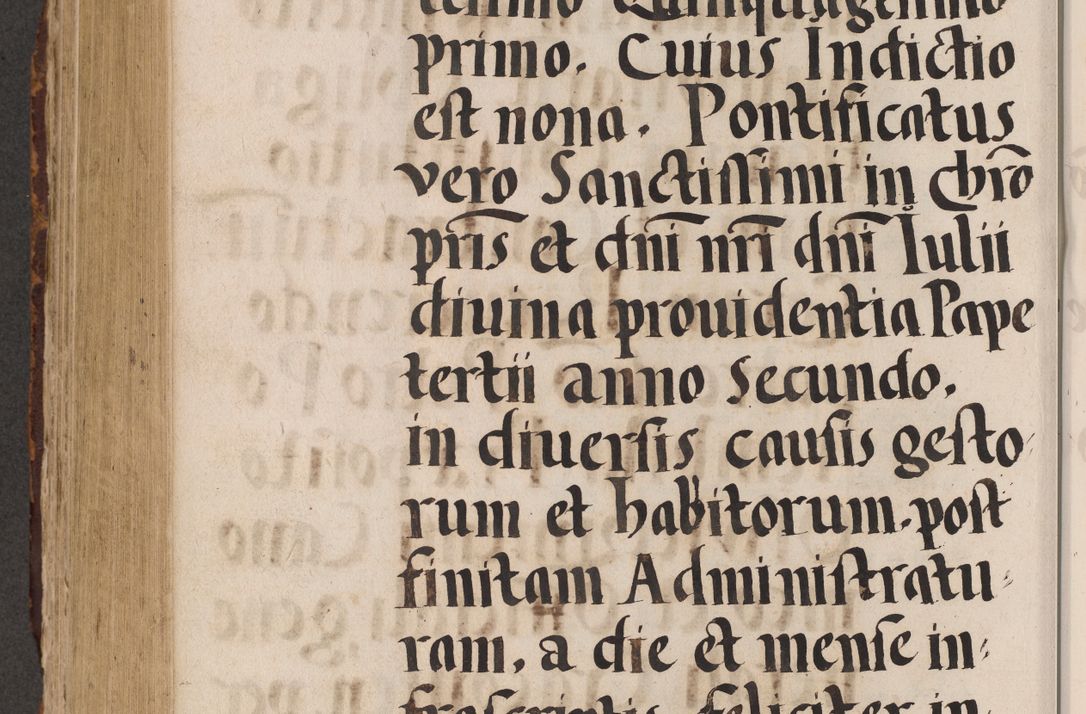 tesimo Quinquagesimo
primo. Cuius Indictio
est nona. Pontificatus
vero Sanctissimi in chrō
pr̄is et dn̄i nr̄i dn̄i Iulii
diuina prouidentia Pape
tertii anno Secundo.
in diuersis causis gesto
rum et habitorum. post
finitam Administratu
ram. a die et mense in
frascriptis feliciter in